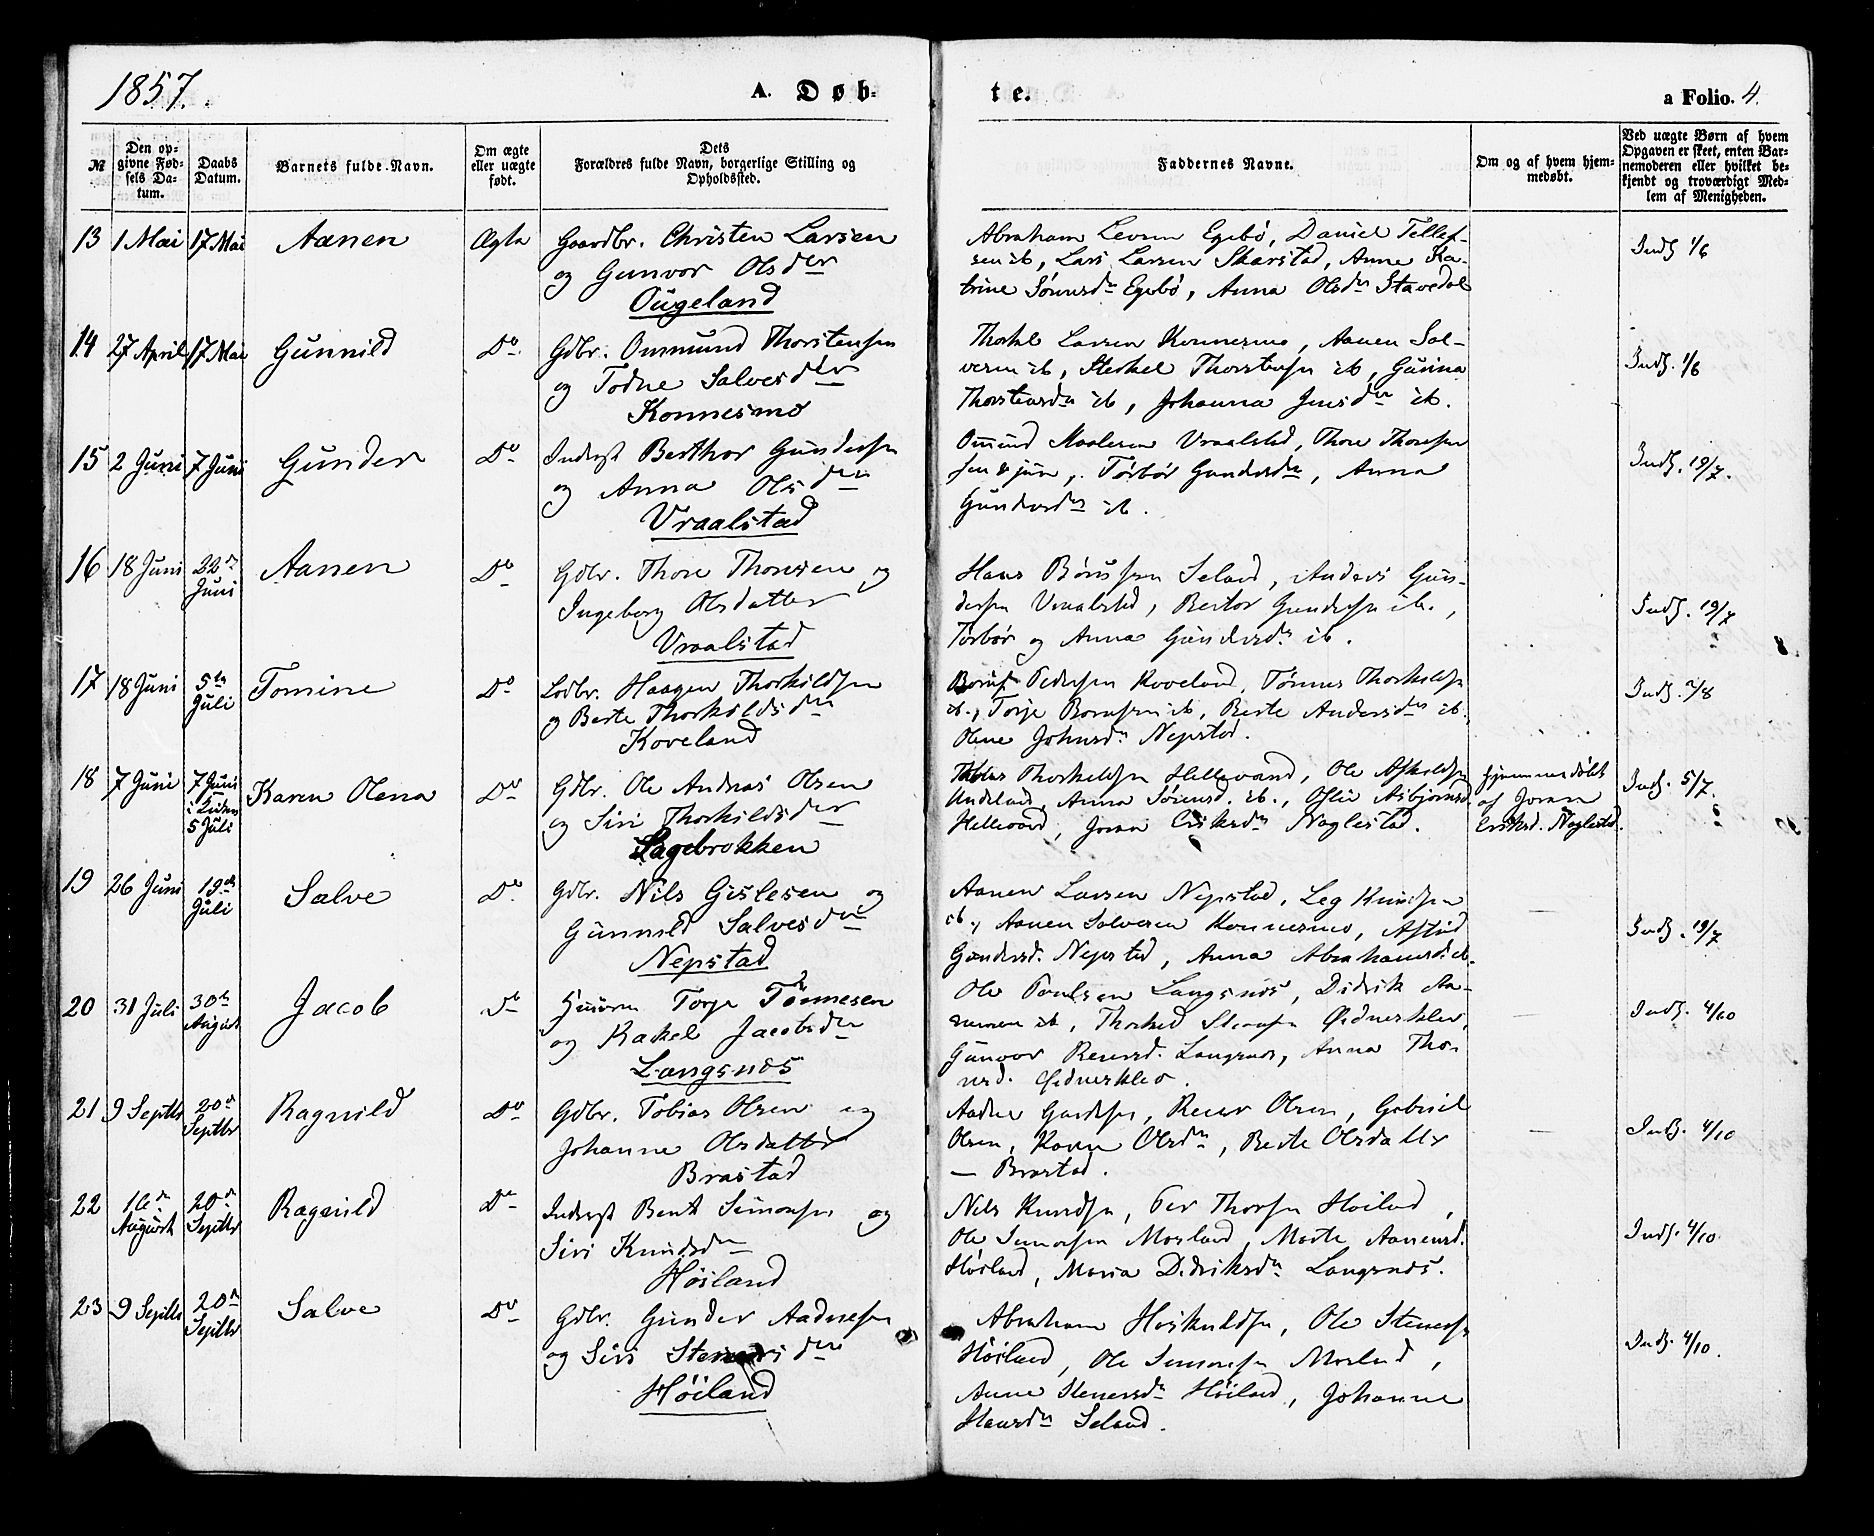 1857.
A. Døb-
te.
a Folio. 4.
№
Den op-
givne Fød-
sels Da-
tum.
Daabs
Datum.
Barnets fulde Navn.
Om ægte
eller uægte
født.
Dets
Forældres fulde Navn, borgerlige Stilling og
Opholdssted.
Faddernes Navne.
Om og af hvem hjem-
medøbt.
Ved uægte Børn af hvem
Opgaven er skeet, enten Bar-
nemoderen eller hvilket be-
kjendt og troværdigt Med-
lem af Menigheden.
13 1 Mai 17 Mai Aanen Ægte Gaardbr. Christen Larsen
og Gunvor Olsdtr
Ougeland
Abraham Egebø, Daniel Tellef-
sen ib, Lars Larsen Skarstad, Anne Ka-
trine Egebø, Anna Olsdr Stavedal
Indf. 1/6
14 27 April 17 Mai Gunnild Do Gdbr. Ommund Thorstensen
og Todne Salvesdtr
Konnesmo
Larsen Konnesmo, Aanen Sal-
vesen ib, Thorstensen ib, Gunna
Thorstensdr ib, Johanna Jensdr ib.
Indf. 1/6
15 2 Juni 7 Juni Gunder Do Inderst Berthor Gundersen
og Anna Olsdtr
Vraalstad
Vraalstad, Thore Thorsen
Torbør Gundersdr, Anna
Gundersdr ib.
Indf. 19/7.
16 18 Juni 22de
Juni Aanen Do Gdbr. Thore Thorsen og
Ingeborg Olsdatter
Vraalstad
Hans Seland, Anders Gun-
dersen Vraalstad, Gundersen ib.,
Torbør og Anna Gundersdr ib.
Indf. 19/7
17 18 Juni 5te
Juli Tomine Do Ldbr. Haagen Thorkildsen
og Berte Thorkildsdr
Koveland
Pedersen Koveland, Tønnes Thorkildsen
ib., Torje ib, Berte Andersdr ib.
Olene Johnsdr Nepstad.
Indf. 2/8
18 7 Juni 7 Juni
i Kirken
5 Juli Karen Olena Do Gdbr. Ole Andreas Olsen
og Siri Thorkildsdtr
Sagebrokken
Thorkildsen Hellevand, Ole
Anna Sørensd. ib.,
Hellevand, Joran Eriksdr Naglestad.
Hjemmedøbt
af Joran
Eriksd. Naglestad.
Indf. 5/7.
19 26 Juni 19de
Juli Salve Do. Gdbr. Nils Gislesen og
Gunnild Salvesdtr
Nepstad
Aanen Larsen Nepstad, Leg Knudsen
ib., Aanen Salvesen Konnesmo,
Gundersd. Nepstad, Anna Abrahamsd. ib.
Indf. 19/7
20 31 Juli 30te
August Jacob Do Torje Tønnesen
og Rakel Jacobsdr
Langsnos
Ole Poulsen Langsnos, Didrik Aa-
nensen ib,
Gunvor Langsnos, Anna
Indf. 4/10
21 9 Septbr 20de
Septbr Ragnild Do Gdbr. Tobias Olsen og
Johanne Olsdatter
Brastad
Reier Olsen, Gabriel
Olsen, Karen Olsdr, Berte Olsdatter
— Brastad.
Indf. 4/10
22 16de
August 20de
Septbr Ragnild Do Inderst Bent Simonsen og
Siri Knudsdr
Høiland
Nils Knudsen, Per Thorsen Høiland,
Ole Simonsen Mosland, Marte Aanensd.
Høiland, Maria Didriksdr Langsnos.
Indf. 4/10.
23 9 Septbr 20de
Septbr Salve Do Gdbr. Gunder Aadnesen
og Siri Stenersdr
Høiland
Abraham Ole Stenersen
Høiland, Ole Simonsen Mosland,
Anne Stenersdr Høiland, Johanne
Hansdr Seland.
Indf. 4/10.